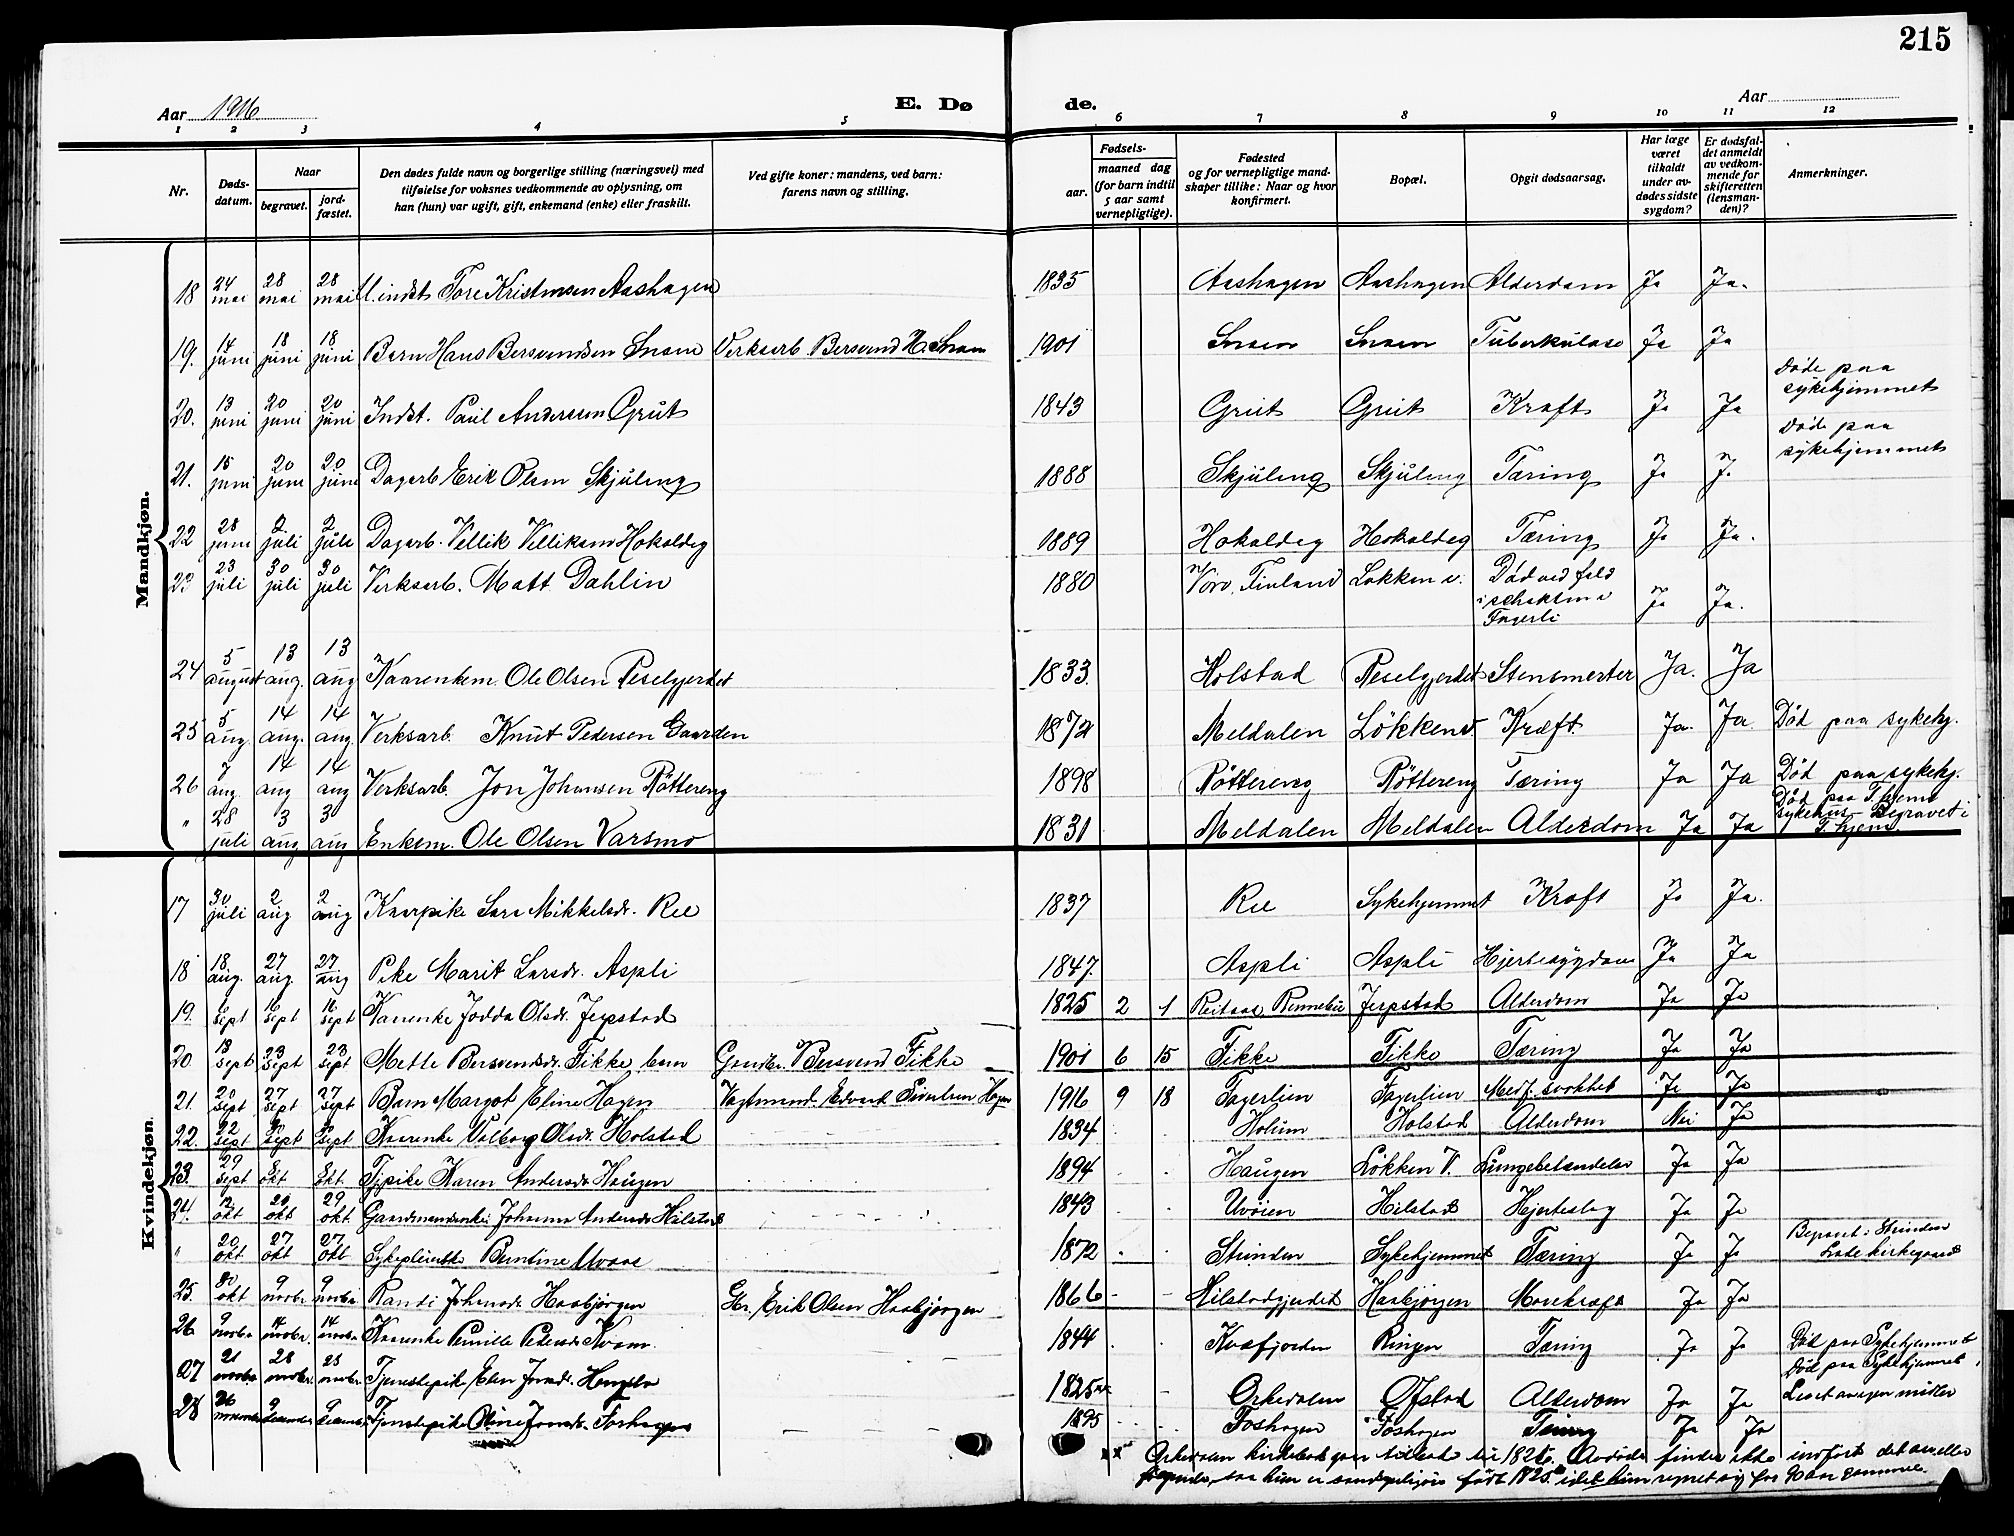 215
Aar 1916
E. Dø
de.
Aar
1 2 3 4 5 6 7 8 9 10 11 12
Nr.
Døds-
datum.
Naar
begravet.
jord-
fæstet.
Den dødes fulde navn og borgerlige stilling (næringsvei) med
tilføielse for voksnes vedkommende av oplysning, om
han (hun) var ugift, gift, enkemand (enke) eller fraskilt.
Ved gifte koner: mandens, ved barn:
farens navn og stilling.
Fødsels-
aar.
maaned dag
(for barn indtil
5 aar samt
vernepligtige).
Fødested
og for vernepligtige mand-
skaper tillike: Naar og hvor
konfirmert.
Bopæl.
Opgit dødsaarsag.
Har læge
været
tilkaldt
under av-
dødes sidste
sygdom?
Er dødsfal-
det anmeldt
av vedkom-
mende for
skifteretten
(lensman-
den)?
Anmerkninger.
Mandkjøn.
18 24 mai 28 mai 28 mai indst Tore Kristensen Aashagen 1835 Aashagen Aashagen Alderdom Ja Ja.
19. 14 juni 18 juni 18 juni Barn Hans Bersvendsen Snoen Verksarb. Bersvend H. Snoen 1901 Snoen Snoen Tuberkulose Ja Ja
20. 13 juni 20 juni 20 juni Indst. Paul Anderssen Grut 1843 Grut Grut Kræft Ja Ja Døde paa sykehjemmet
21. 15 juni 20 juni 20 juni Dagarb Erik Olsen Skjuleng 1888 Skjuleng Skjuleng Tæring Ja J. Død paa sykehjemmet
22 28 juni 2 juli 2 juli Dagarb. Villik Villiksen Hokaldeg 1889 Hokaldeg Hokaldeg Tæring Ja Ja.
23 23 juli 30 juli 30 juli Verksarb. Matt Dahlin 1880 Vörå, Finland Løkken v. Død ved fald i schakten i Fagerli Ja Ja.
24 5 august 13 aug. 13 aug Kaarenkem. Ole Olsen Reselgjerdet 1833. Holstad Reselgjerdet Stensmerter Ja. Ja
25 5 aug. 14 aug. 14 aug. Verksarb. Knut Pedersen Gaarden 1872 Meldalen Løkken v. Kræft. Ja. Ja. Død paa sykehj.
26 7 aug. 14 aug 14 aug Verksarb. Jon Johansen Røttereng 1898 Røttereng Røttereng Tæring Ja Ja Død paa sykehj.
" 28 juli 3 aug 3 aug Enkem. Ole Olsen Varsmo 1831 Meldalen Meldalen Alderdom Ja Ja Død paa T.hjems sykehus Begravet i T.hjem.
Kvindekjøn.
17 30 juli 2 aug 2 aug Kaarpike Mikkelsdr. Ree 1837 Ree Sykehjemmet Kræft Ja Ja.
18 18 aug. 27 aug. 27 aug Pike Marit Larsdr. Aspli 1847. Aspli Aspli Hjertesygdom Ja Ja
19. 6 sept 16 sept 16 sept Kaarenke Jodda Olsdr. Jerpstad 1825 2 1 Reitaas Rennebu Jerpstad Alderdom Ja Ja
20 18 sept 23 sept 23 sept Mette Bersvendsdr. Fikke, barn Gaardbr. Bersvend Fikke 1901 6 15 Fikke Fikke Tæring Ja Ja
21. 20 sept 27 sept 27 sept Barn Margot Eline Hagen Vagtmand. Edvard Sivertsen Hagen 1916 9 18 Fagerlien Fagerlien Medf. svakhet Ja Ja
22. 22 sept sept sept Kaarenke Valborg Olsdr. Holstad 1834 Holum Holstad Alderdom Nei Ja
23. 29 sept 8 okt 8 okt. Tjpike Karen Andersdr Haugen 1894 Haugen Løkken V. Lungebetændelse Ja Ja
24. 12 okt 20 okt 29 okt Gaardmandsenke Johanna Andersdr Hilstad 1843 Uvoien Hilstad Hjerteslag Ja Ja
" 20 okt 27 okt 27 okt Berntine 1872 Strinden Sykehjemmet Tæring Ja Ja Begravet i Strinden Lade kirkegaard
25. 30 okt 9 novbr 9 novbr Randi Johansdr Haabjørgen Gbr. Erik Olsen Haabjørgen 1866 Hilstadgjerdet Haabjørgen Mavekræft Ja Ja
26 9 novbr 14 novbr 14 novbr Kaarenke Pernille Pedersdr. Kvam 1844 Kvæfjorden Ringen Tæring Ja Ja Død paa Sykehjemmet
27 21 novbr 28 novbr. 28 novbr. Tjenestepike Elen Jonsdr. 1825xx Orkedalen Ofstad Alderdom Ja Ja Død paa Sykehjemmet, Levet av egen midler
28 26 november 9 december 9 december Tjenestepike Oline Jonsdr. Foshagen 1895 Foshagen Foshagen Tæring Ja Ja
xx Orkedalen kirkebok gaar tilbake til 1825. Avdøde findes ikke indført det aar eller
følgende, saa hun er sandsynligvis født 1825 idet hun regnet sig for 90 aar gammel.